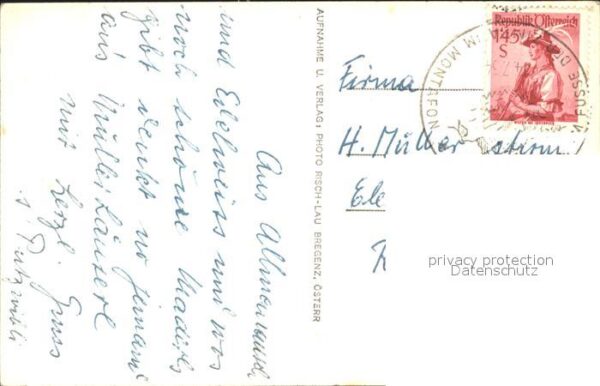 Aus Almenrausch
und Edelweiss und wo's
noch schöne Madirls
gibt denkt no jemand
aus Müllers Häuserl
mit herzl. Gruss
s' Putzwibli
AUFNAHME U. VERLAG: PHOTO RISCH-LAU BREGENZ, ÖSTERR
Republik Österreich
1.45
S
IM MONTAFON
Firma
H. Müller
Ele
privacy protection
Datenschutz